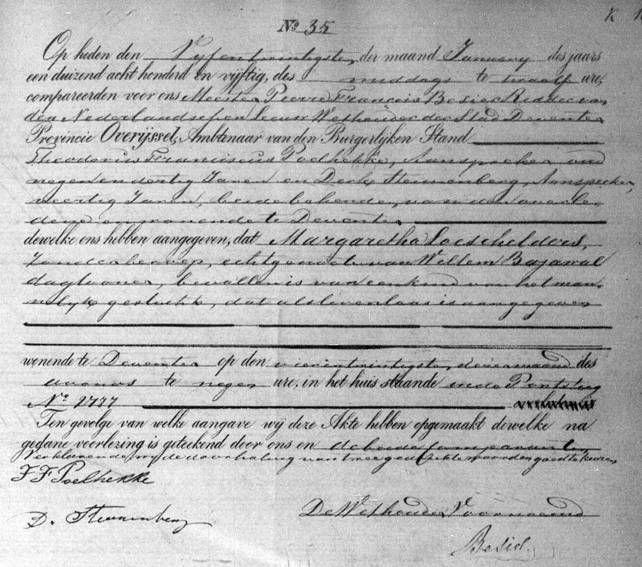 No 35
Op heden den Vyfentwintigsten der maand January des jaars
een duizend acht honderd en vyftig, des middags te twaalf ure,
compareerden voor ons Meester Pierre François Besier Ridder van
den Nederlandschen Leeuw Wethouder der Stad Deventer
Provincie Overijssel, Ambtenaar van den Burgerlijken Stand
Theodorus Franciscus Poelhekke, Aanspreker oud
negenendertig Jaren en Derk Stennenberg, Aanspreker,
veertig Jaren, beide bekenden van den overle
dene en wonende te Deventer
dewelke ons hebben aangegeven, dat Margaretha Loeschelders,
zonder beroep, echtgenoote van Willem Bajawal
daglooner, bevallen is van een kind van het man
nelyk geslacht, dat als levenloos is aangegeven
wonende te Deventer op den vierentwintigsten dezer maand des
avonds te negen ure, in het huis staande in de Pontsteeg
No 2777
Ten gevolge van welke aangave wy deze Akte hebben opgemaakt dewelke na
gedane voorlezing is geteekend door ons en de beide Comparanten
Verklarende wy de doorhaling van twee gedrukte woorden goed te keuren
T F Poelhekke
D. Stennenberg
De Wethouder Voornoemd
Besier